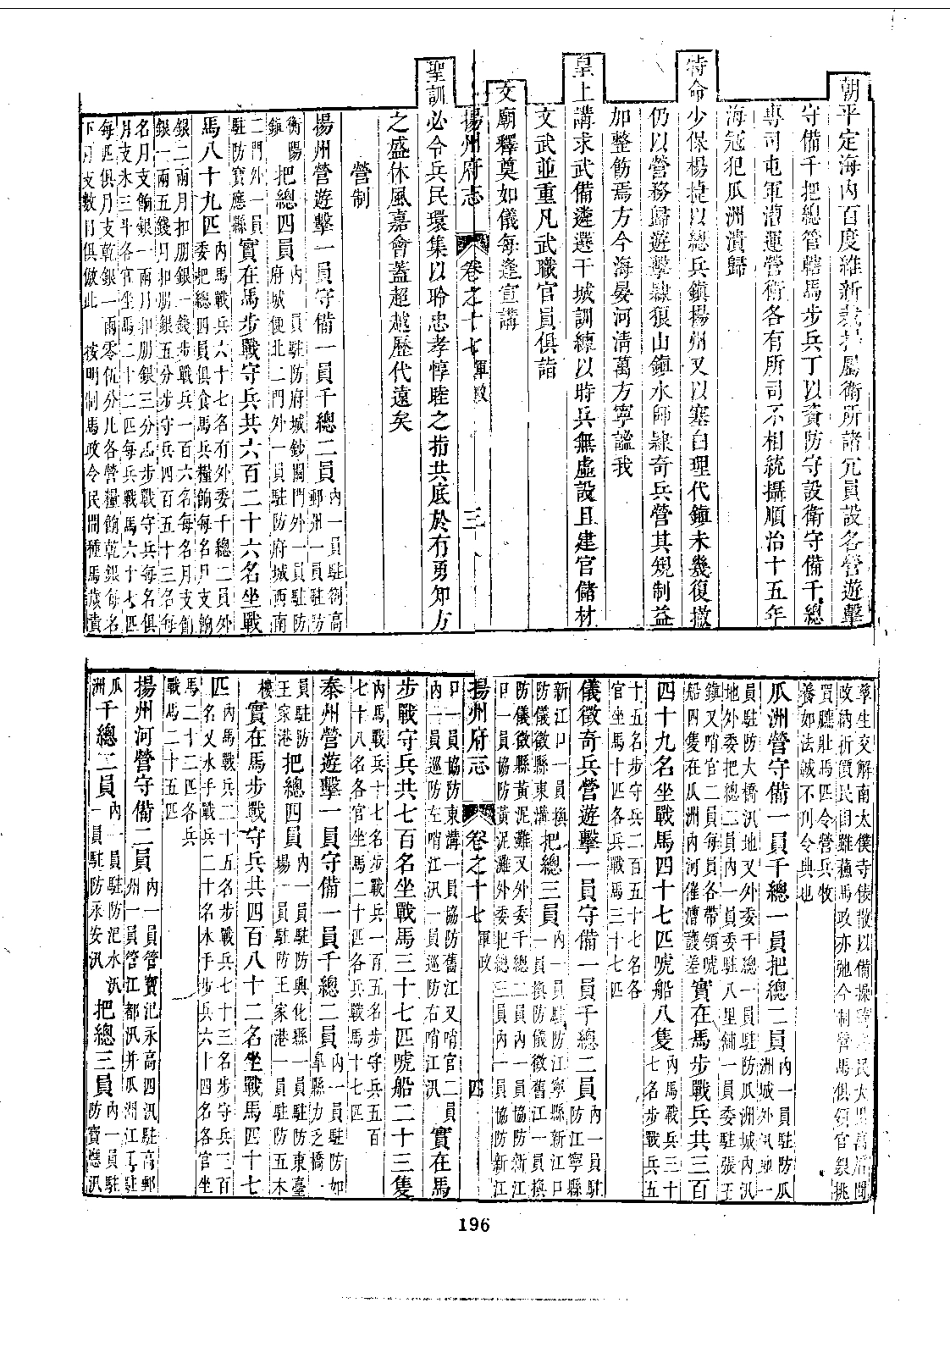 朝平定海內百度維新裁衛所諸冗員設各營遊擊
守備千把總管轄馬步兵丁以資防守設衛守備千總
專司屯軍漕運營衛各有所司不相統攝順治十五年
海寇犯瓜洲潰歸
特命少保楊捷以總兵鎮揚州又以塞白理代鎮未幾復撤
仍以營務歸遊擊隸狼山鎮水師隸奇兵營其規制益
加整飭焉方今海晏河清萬方寧謐我
皇上講求武備遴選干城訓練以時兵無虛設且建官儲材
文武並重凡武職官員俱詣
文廟釋奠如儀每逢宣講
揚州府志 卷之十七 軍政 三
聖訓必令兵民環集以聆忠孝惇睦之指共底於有勇知方
之盛休風嘉會蓋超越歷代遠矣
營制
揚州營遊擊一員守備一員千總二員內一員駐劄高
郵州一員駐防
衡陽把總四員內一員駐防府城鈔關門外一員駐防
鎮府城便北二門外一員駐防府城西南
二門外一員
駐防寶應縣實在馬步戰守兵共六百二十六名坐戰
馬八十九匹內馬戰兵六十七名有外委千總二員外
委把總四員俱食馬兵糧餉每名月支餉
銀二兩月扣朋銀一錢步戰兵一百六名每名月支餉
銀一兩五錢月扣朋銀五分步守兵四百五十三名每
名月支餉銀一兩月扣朋銀三分馬步戰守兵每名俱
月支米三斗各官坐馬二十二匹每兵戰馬六十七匹
每匹俱月支乾銀一兩零仇分凡各營糧餉乾銀每名
下月支數目俱倣此 按明制馬政令民間種馬歲責
孳生交解南太僕寺俵散以備操
改納折價民自雖種馬政亦弛今制營馬俱領官製挑
買臕壯馬匹令營兵牧
養如法誠不刋令典也
瓜洲營守備一員千總一員把總二員內一員駐防瓜
洲城外
員駐防大橋汛地又外委千總一員駐防瓜洲城內汛
地外委把總二員內一員委駐八里鋪一員委駐張王
鎮又哨官二員每員各帶領唬
船四隻在瓜洲內河催漕護差實在馬步戰兵共三百
四十九名坐戰馬四十七匹唬船八隻內馬戰兵三十
七名步戰兵五
十五名步守兵二百五十七名各
官坐馬十四匹各兵戰馬三十七匹
儀徵奇兵營遊擊一員守備一員千總二員內一員駐
防江寧縣
新江口一員換
防儀徵縣東溝把總三員內一員駐防江寧縣新江口
一員換防儀徵舊江一員換
防儀徵縣黃泥灘又外委千總二員內一員協防新江
口一員協防黃泥灘外委把總三員內一員協防新江
揚州府志 卷之十七 軍政 四
口一員協防東溝一員協防舊江又哨官二員
內一員巡防左哨江汛一員巡防右哨江汛實在馬
步戰守兵共七百名坐戰馬三十七匹唬船二十三隻
內馬戰兵十七名步戰兵一百五名步守兵五百
七十八名各官坐馬二十匹各兵戰馬十七匹
泰州營遊擊一員守備一員千總二員內一員駐防如
皐縣力乏橋
員駐防把總四員內一員駐防興化縣一員駐防東臺
王家港場一員駐防王家港一員駐防五木
樓實在馬步戰守兵共四百八十二名坐戰馬四十七
匹內馬戰兵二十五名步戰兵七十三名步守兵三百
名又水手戰兵二十名水手步兵六十四名各官坐
馬二十二匹各兵
戰馬二十五匹
揚州河營守備二員內一員管寶汜永高四汛駐高郵
州一員管江都汛并瓜洲江工駐
瓜千總二員內一員駐防汜水汛
洲一員駐防永安汛把總三員內一員駐
防寶應汛
196